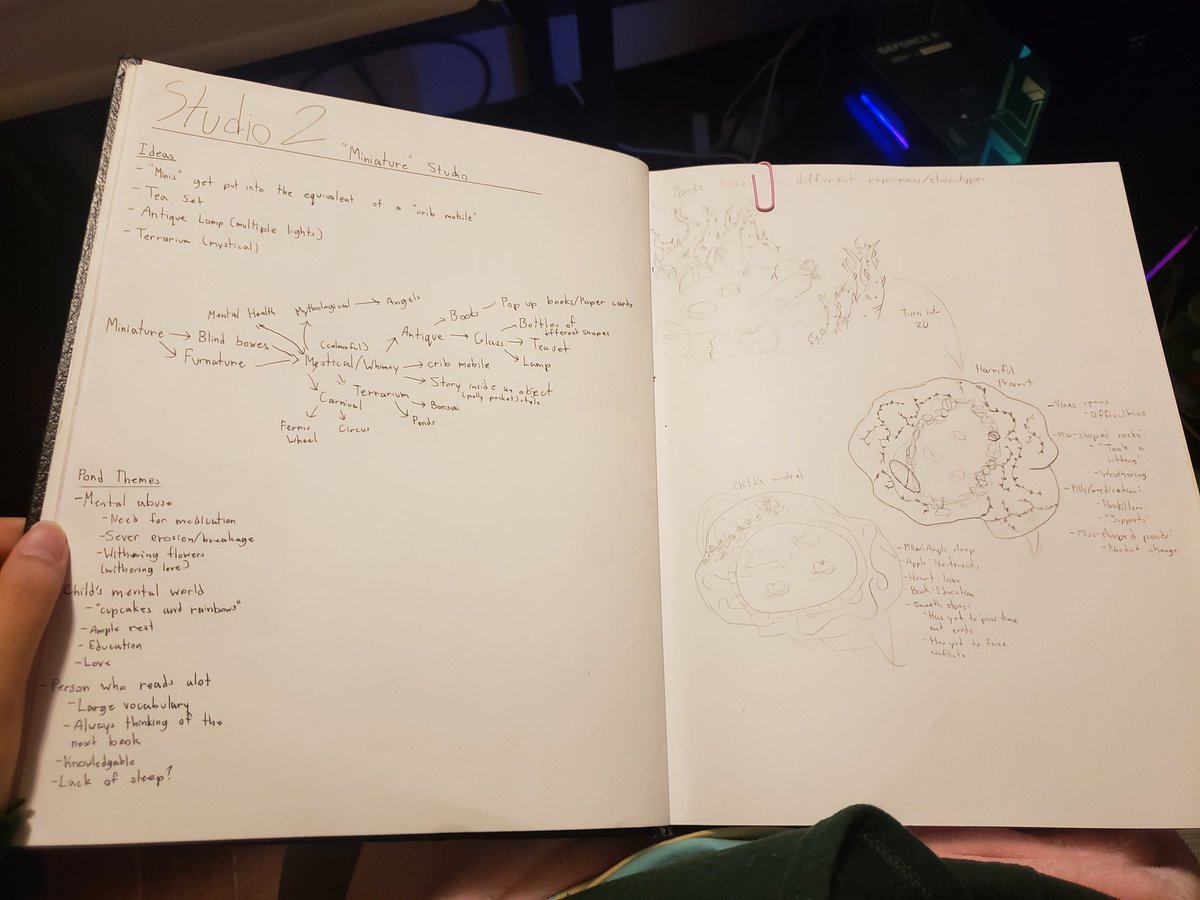 Studio 2
"Miniature" Studio
Ideas
- "Minis" get put into the equivalent of a "crib mobile"
- Tea set
- Antique Lamp (multiple lights)
- Terrarium (mystical)
Miniature
Blind boxes
Furnature
Mental Health
Mythological
Angels
(colourful)
Mystical/Whimsy
Antique
Books
Pop up books/Paper cards
Glass
Bottles of
different shapes
Tea set
Lamp
crib mobile
Story inside an object
(polly pocket) style
Terrarium
Bonsai
Ponds
Carnival
Ferris
Wheel
Circus
Pond Themes
- Mental abuse
- Need for medication
- Sever erosion/breakage
- Withering flowers
(withering love)
Child's mental world
- "cupcakes and rainbows"
- Ample rest
- Education
- Love
- Person who reads alot
- Large vocabulary
- Always thinking of the
next book
- Knowledgable
- Lack of sleep?
Ponds different experiences/stereotypes
Turn into
2D
Harmful
Present
- Vines: pains
- Difficulties
- Miss-shaped rocks:
- "Took a
- Weathering
- Pills/medication:
- Painkillers
- "Supports"
- Miss-shaped ponds:
change
Child's mindset
- Pillow: Ample sleep
- Apple: Nutrients
- Heart: love
- Book: Education
- Smooth stones:
- Has yet to pass time
and erode
- Has yet to face
conflicts
GEFORCE RTX